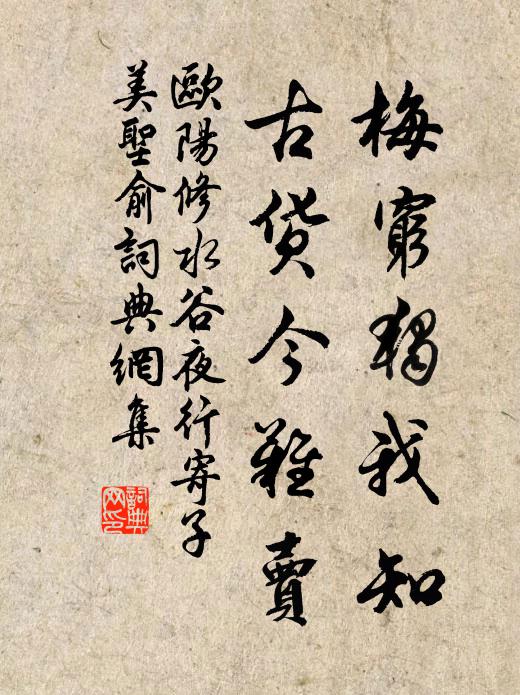 梅窮獨我知
古貨今難賣
歐陽修水谷夜行寄子
美聖俞詞典網集
詞典
网印